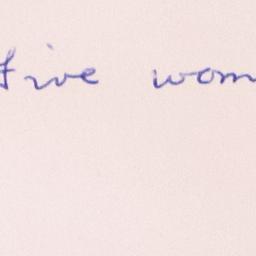 five wom